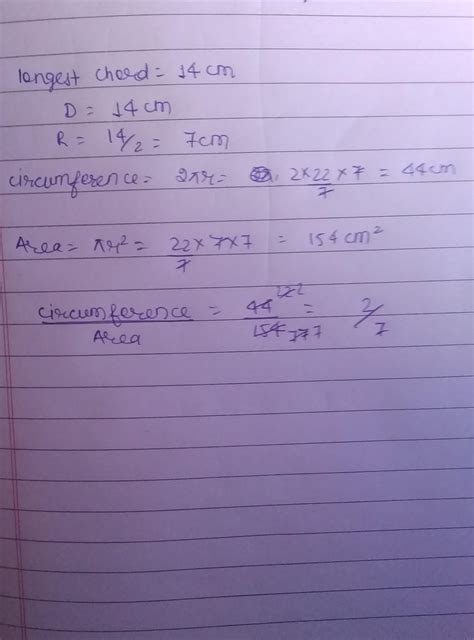 longest chord = 14 cm
D = 14 cm
R = 14/2 = 7cm
circumference = 2πr = 2×22×7/7 = 44cm
Area = πr² = 22×7×7/7 = 154 cm²
circumference/Area = 44/154 = 2/7